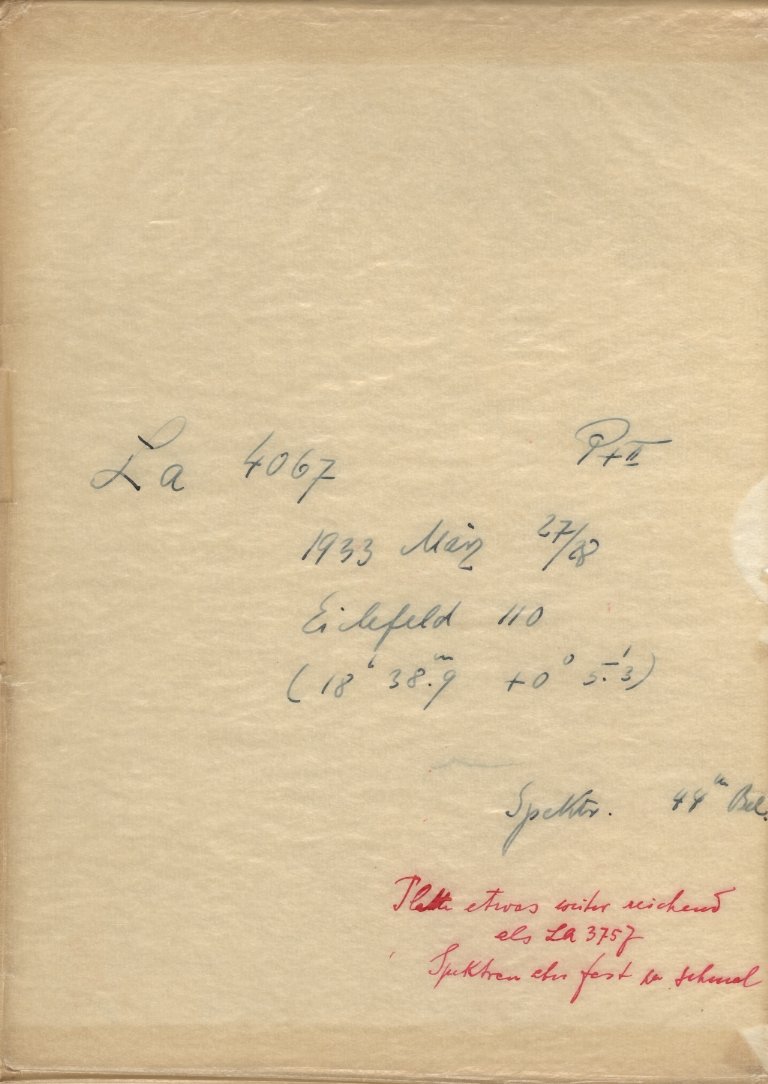 La 4067 P+II
1933 März 27/28
Eichfeld 110
(18ʰ 38.ᵐ9 +0° 5.'3)
Spektr. 44ᵐ Bel.
Platte etwas weiter reichend
als La 3757
Spektren aber fast zu schmal